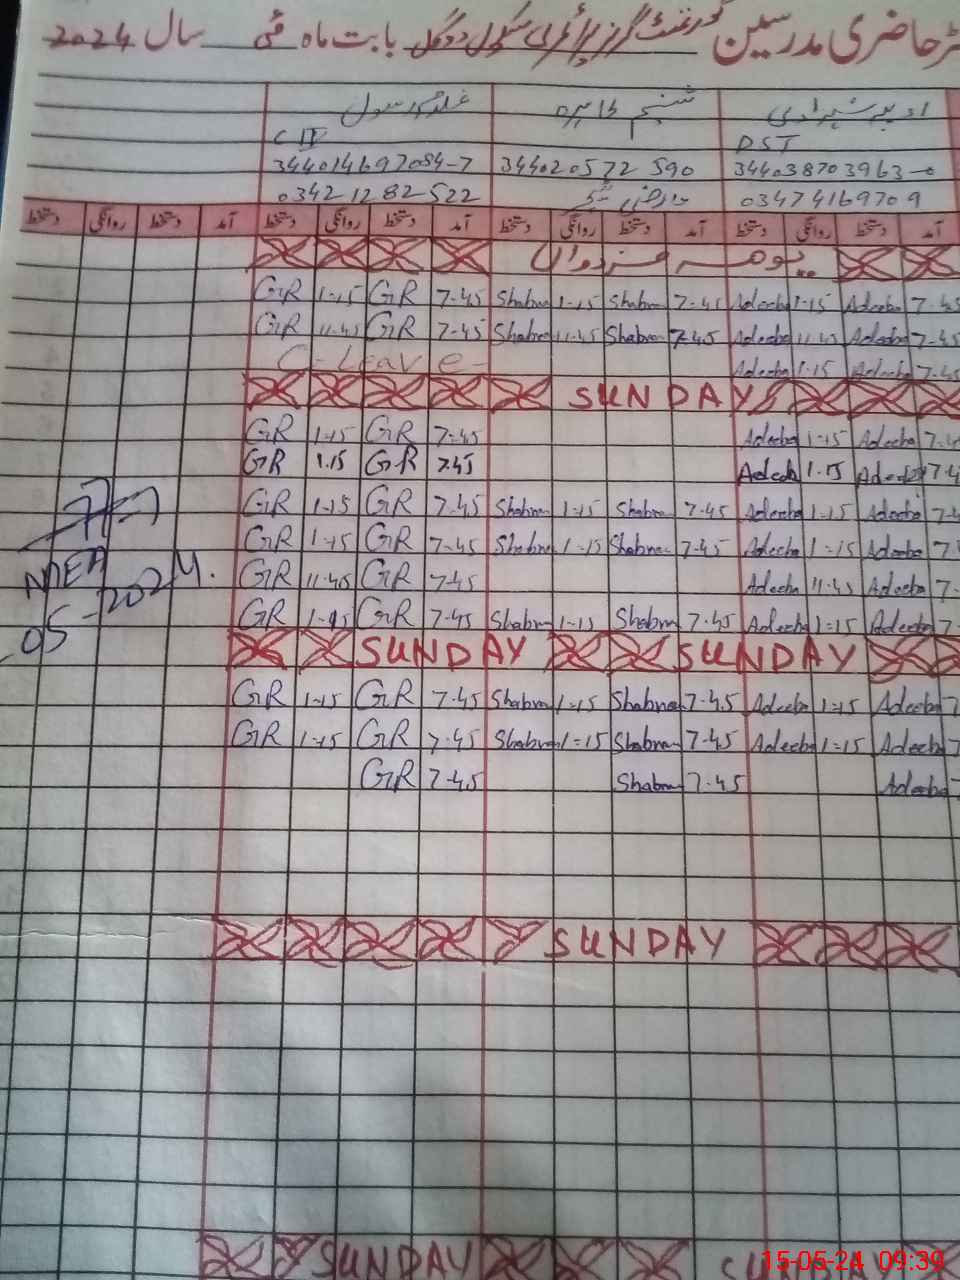 رحاضری مدرسین گورنمنٹ گرلز پرائمری سکول بابت ماہ مئی سال 2024
غلام رسول
DST
34402 0572 590 344038703963-0
03421282522 03474169709
آمد دستخط روانگی دستخط آمد دستخط روانگی دستخط آمد دستخط روانگی دستخط آمد دستخط روانگی دستخط
یوم مزدوراں
GR 1-15 GR 7-45 Shabna 1-15 Shabna 7-45 Adeeba 1-15 Adeeba 7-45
GR 11-45 GR 7-45 Shabna 11-45 Shabna 7-45 Adeeba 11-45 Adeeba 7-45
C-Leave- Adeeba 1-15 Adeeba 7-45
SUNDAY
GR 1-15 GR 7-45 Adeeba 1-15 Adeeba 7-4
GR 1.15 GR 7.45 Adeeba 1-15 Adeeba 7-4
GR 1-15 GR 7-45 Shabna 1-15 Shabna 7-45 Adeeba 1-15 Adeeba 7-4
GR 1-15 GR 7-45 Shabna 1-15 Shabna 7-45 Adeeba 1-15 Adeeba 7-
GR 11-45 GR 7-45 Adeeba 11-45 Adeeba 7-
GR 1-15 GR 7-45 Shabna 1-15 Shabna 7-45 Adeeba 1-15 Adeeba 7-
MEA
05-2024.
SUNDAY SUNDAY
GR 1-15 GR 7-45 Shabna 1-15 Shabna 7-45 Adeeba 1-15 Adeeba 7
GR 1-15 GR 7-45 Shabna 1-15 Shabna 7-45 Adeeba 1-15 Adeeba 7
GR 7-45 Shabna 7-45 Adeeba 7
SUNDAY
SUNDAY SUNDAY
15-05-24 09:39